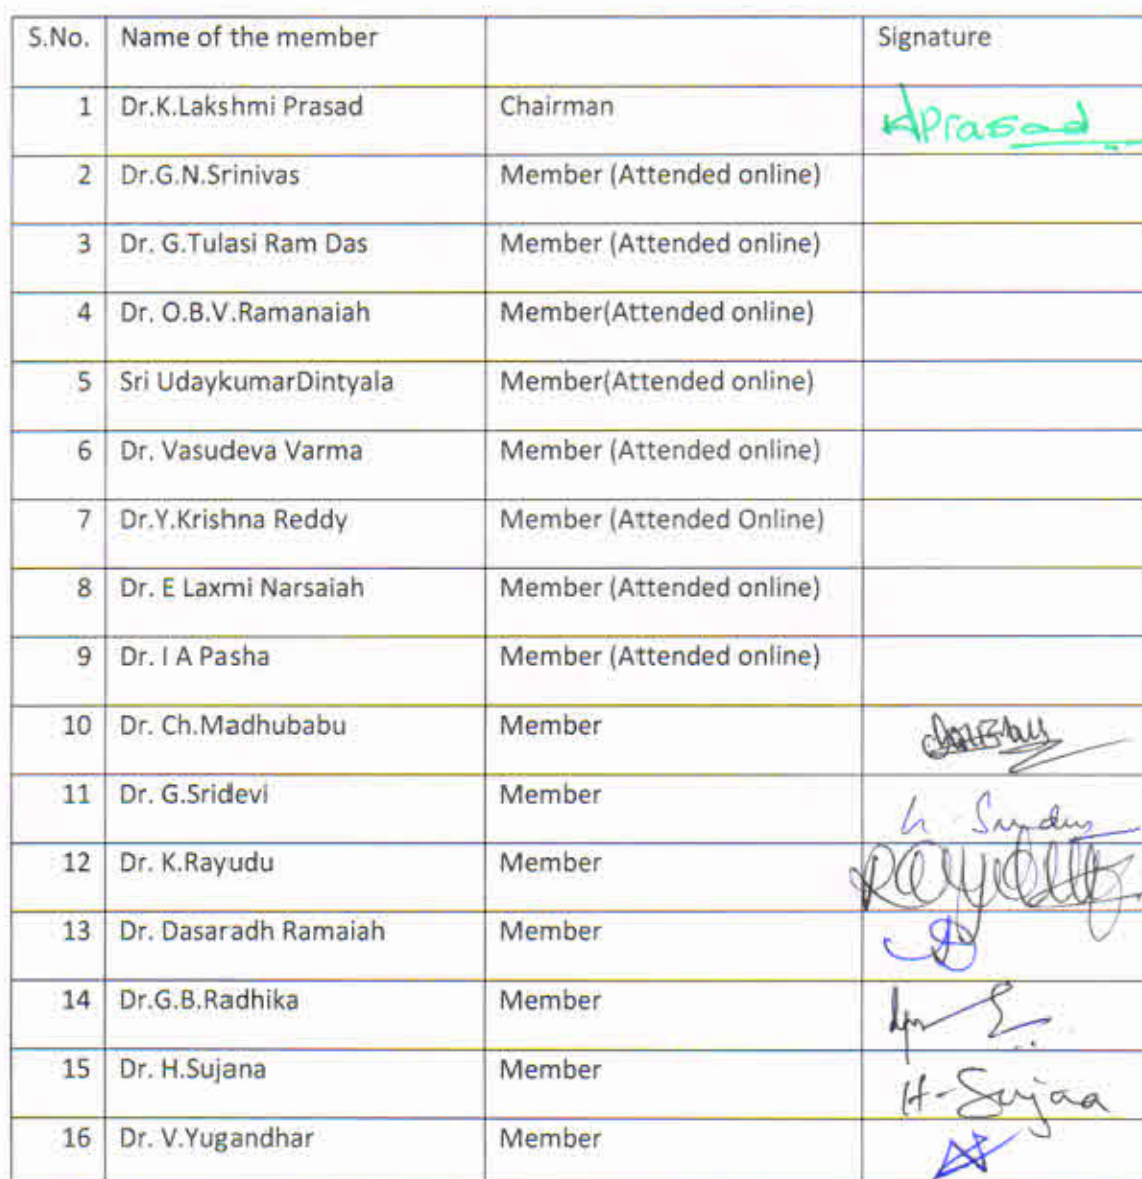 S.No. Name of the member Signature
1 Dr.K.Lakshmi Prasad Chairman Prasad
2 Dr.G.N.Srinivas Member (Attended online)
3 Dr. G.Tulasi Ram Das Member (Attended online)
4 Dr. O.B.V.Ramanaiah Member(Attended online)
5 Sri UdaykumarDintyala Member(Attended online)
6 Dr. Vasudeva Varma Member (Attended online)
7 Dr.Y.Krishna Reddy Member (Attended Online)
8 Dr. E Laxmi Narsaiah Member (Attended online)
9 Dr. I A Pasha Member (Attended online)
10 Dr. Ch.Madhubabu Member
11 Dr. G.Sridevi Member
12 Dr. K.Rayudu Member
13 Dr. Dasaradh Ramaiah Member
14 Dr.G.B.Radhika Member
15 Dr. H.Sujana Member
16 Dr. V.Yugandhar Member